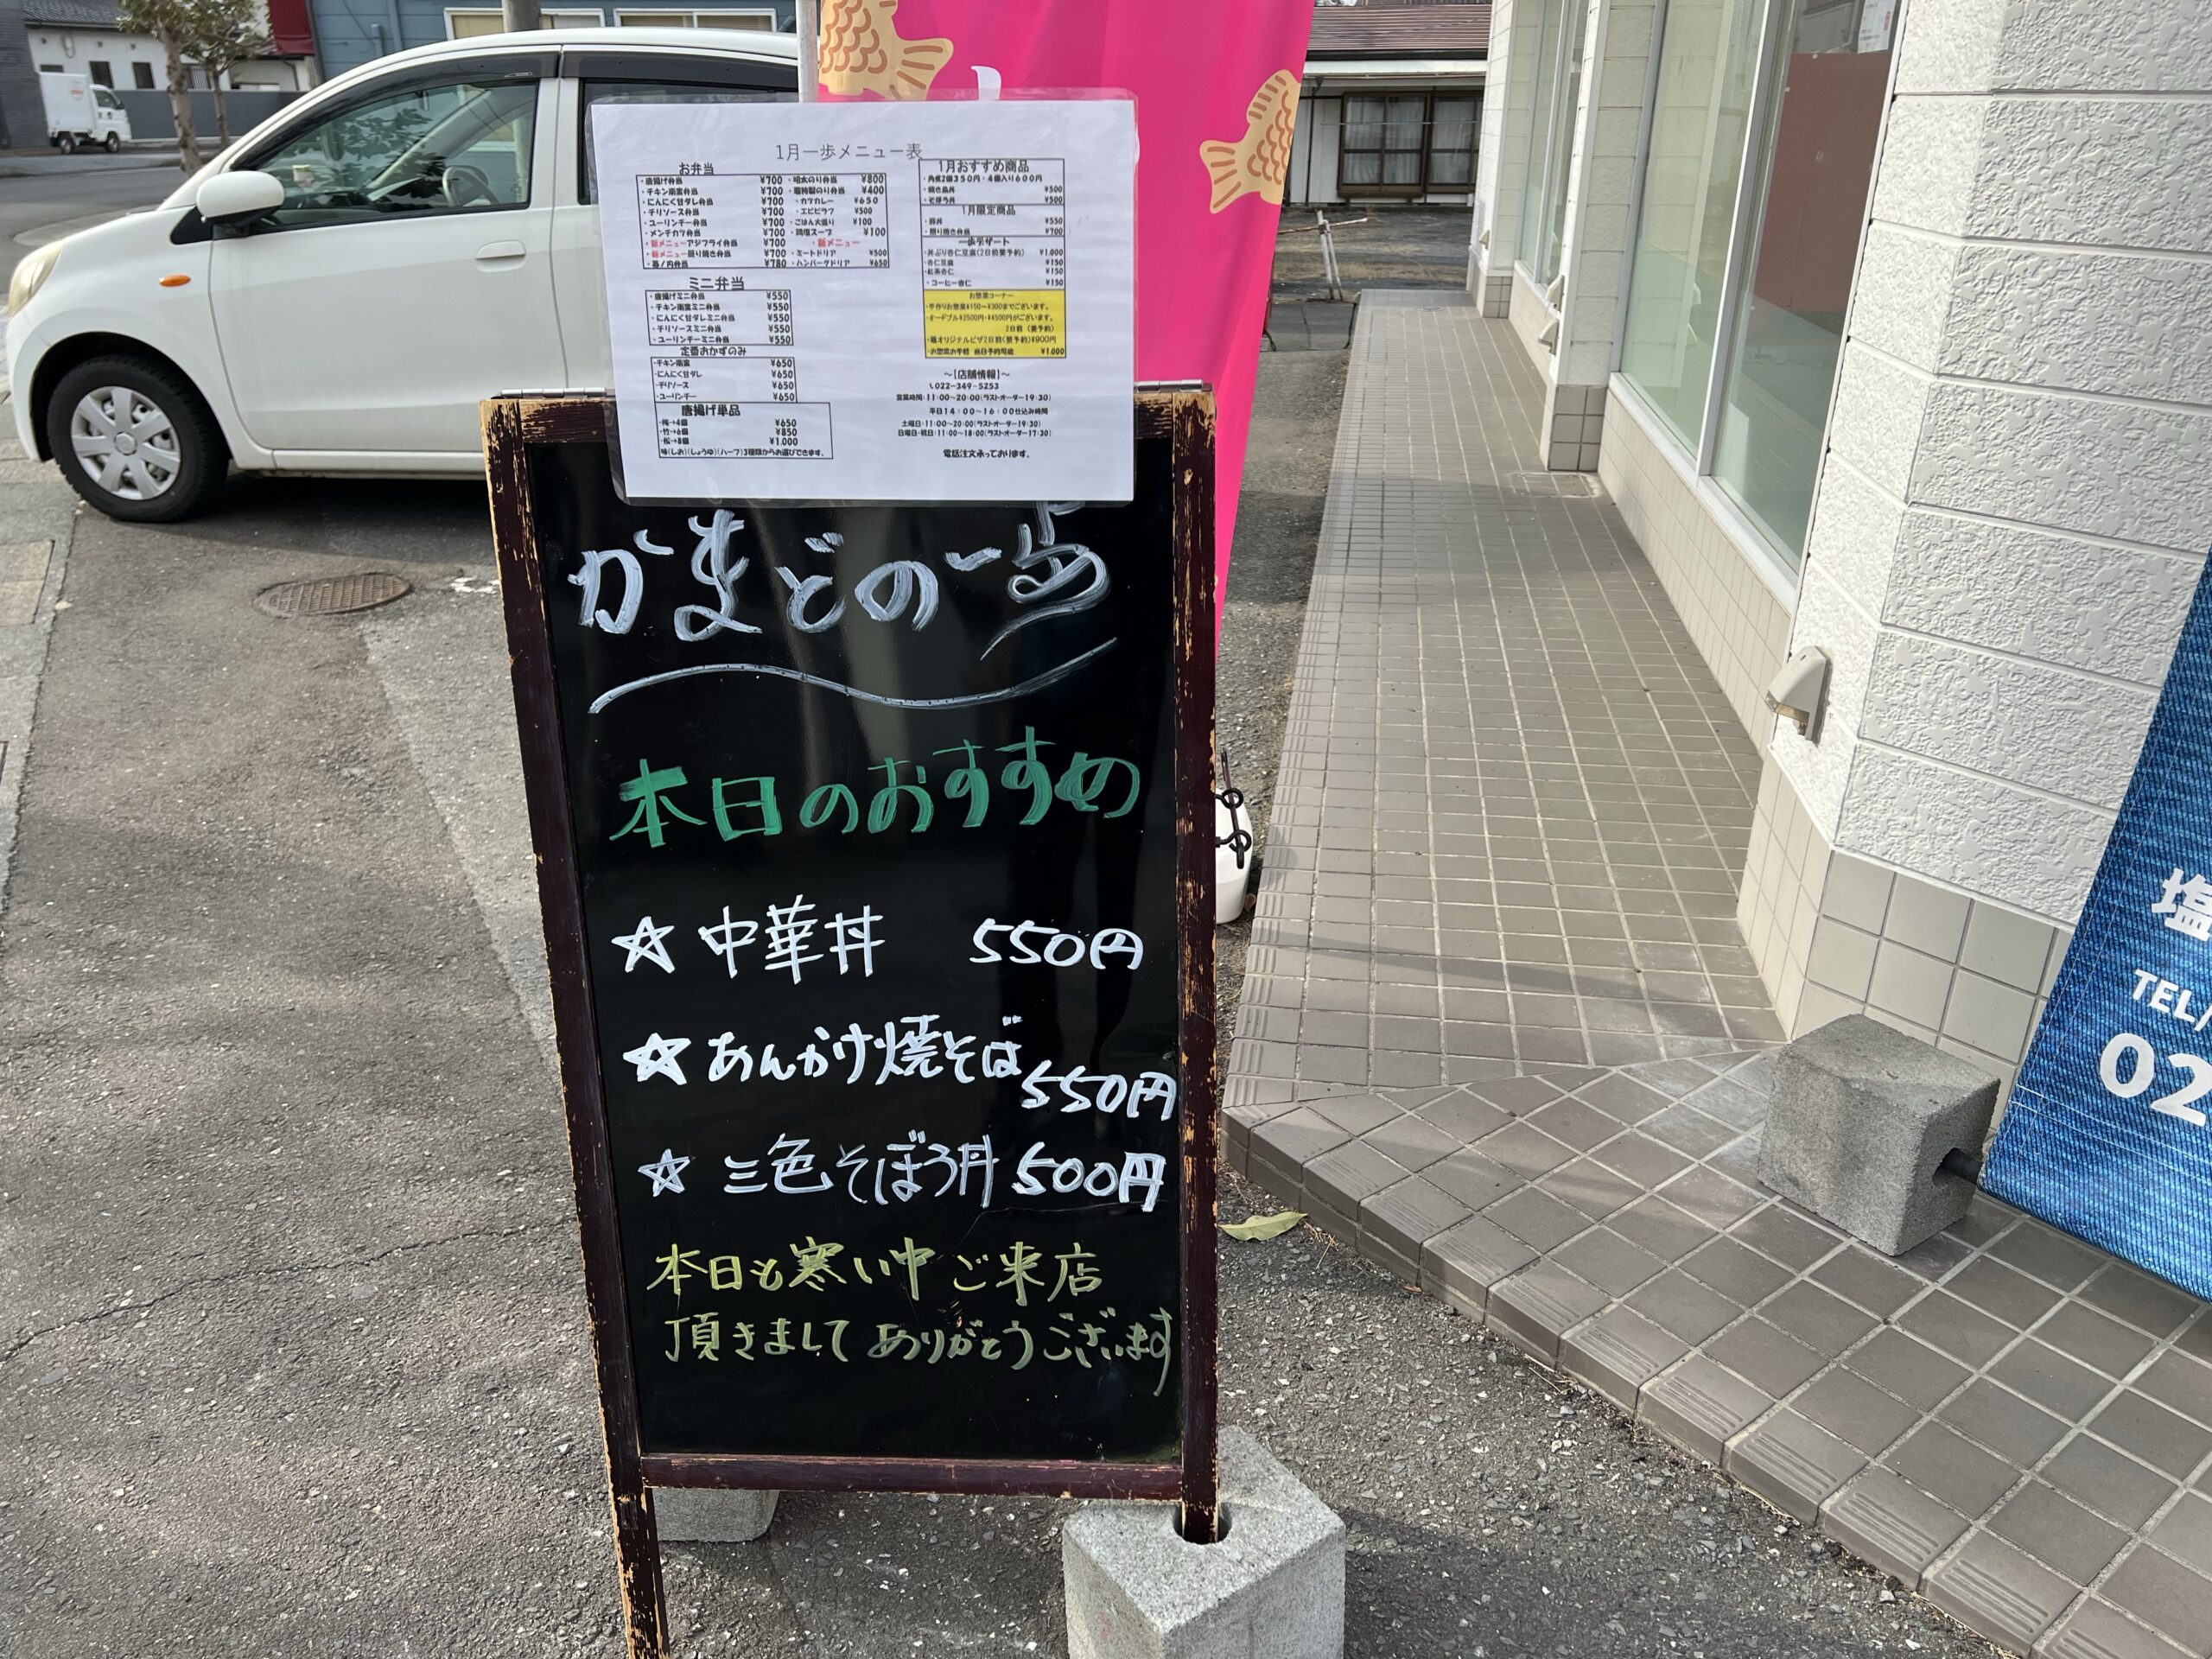 1月一歩メニュー表
お弁当
・唐揚げ弁当 ¥700
・チキン南蛮弁当 ¥700
・にんにく甘ダレ弁当 ¥700
・チリソース弁当 ¥700
・ユーリンチー弁当 ¥700
・メンチカツ弁当 ¥700
・新メニューアジフライ弁当 ¥700
・新メニュー照り焼き弁当 ¥700
・幕ノ内弁当 ¥780
・明太のり弁当 ¥800
・特製のり弁当 ¥400
・カツカレー ¥650
・エビピラフ ¥500
・ごはん大盛り ¥100
・スープ ¥100
・新メニュー
・ミートドリア ¥500
・ハンバーグドリア ¥650
ミニ弁当
・唐揚げミニ弁当 ¥550
・チキン南蛮ミニ弁当 ¥550
・にんにく甘ダレミニ弁当 ¥550
・チリソースミニ弁当 ¥550
・ユーリンチーミニ弁当 ¥550
定番おかずのみ
・チキン南蛮 ¥650
・にんにく甘ダレ ¥650
・チリソース ¥650
・ユーリンチー ¥650
唐揚げ単品
・梅→4個 ¥650
・竹→6個 ¥850
・松→8個 ¥1,000
味(しお)(しょうゆ)(ハーフ)3種類からお選びできます。
1月おすすめ商品
・角煮2個350円・4個入り600円
・焼き鳥丼 ¥500
・そぼろ丼 ¥500
1月限定商品
・豚丼 ¥550
・照り焼き弁当 ¥700
一歩デザート
・丼ぶり杏仁豆腐(2日前要予約) ¥1,000
・杏仁豆腐 ¥150
・紅茶杏仁 ¥150
・コーヒー杏仁 ¥150
お惣菜コーナー
・手作りお惣菜¥150～¥300までございます。
・オードブル¥2500円・¥4500円がございます。
2日前(要予約)
オリジナルピザ2日前(要予約)¥900円
・お惣菜お手軽 当日予約可能 ¥1,000
～【店舗情報】～
022-349-5253
営業時間:11:00～20:00(ラストオーダー19:30)
平日14:00～16:00仕込み時間
土曜日:11:00～20:00(ラストオーダー19:30)
日曜日・祝日:11:00～18:00(ラストオーダー17:30)
電話注文承っております。
かまどの一歩
本日のおすすめ
☆ 中華丼 550円
☆ あんかけ焼そば 550円
☆ 三色そぼろ丼 500円
本日も寒い中 ご来店
頂きまして ありがとうございます
塩
TEL/
02